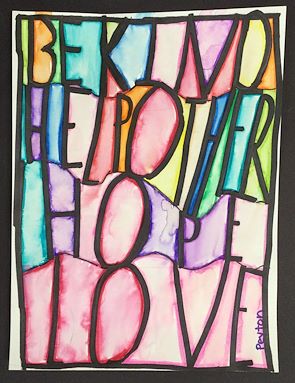 BE KIND
HELP OTHER
HOPE
LOVE
Peyton